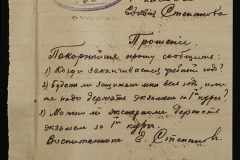 Евгении Степановой
Прошение
Покорнейше прошу сообщить:
1) Когда заканчивается учебный год?
2) Будет ли защитан мне весь год, или
же надо держать экзамены за I курс?
3) Можно ли экстерном держать
экзамен за I курс
Воспитанница Е Степанов